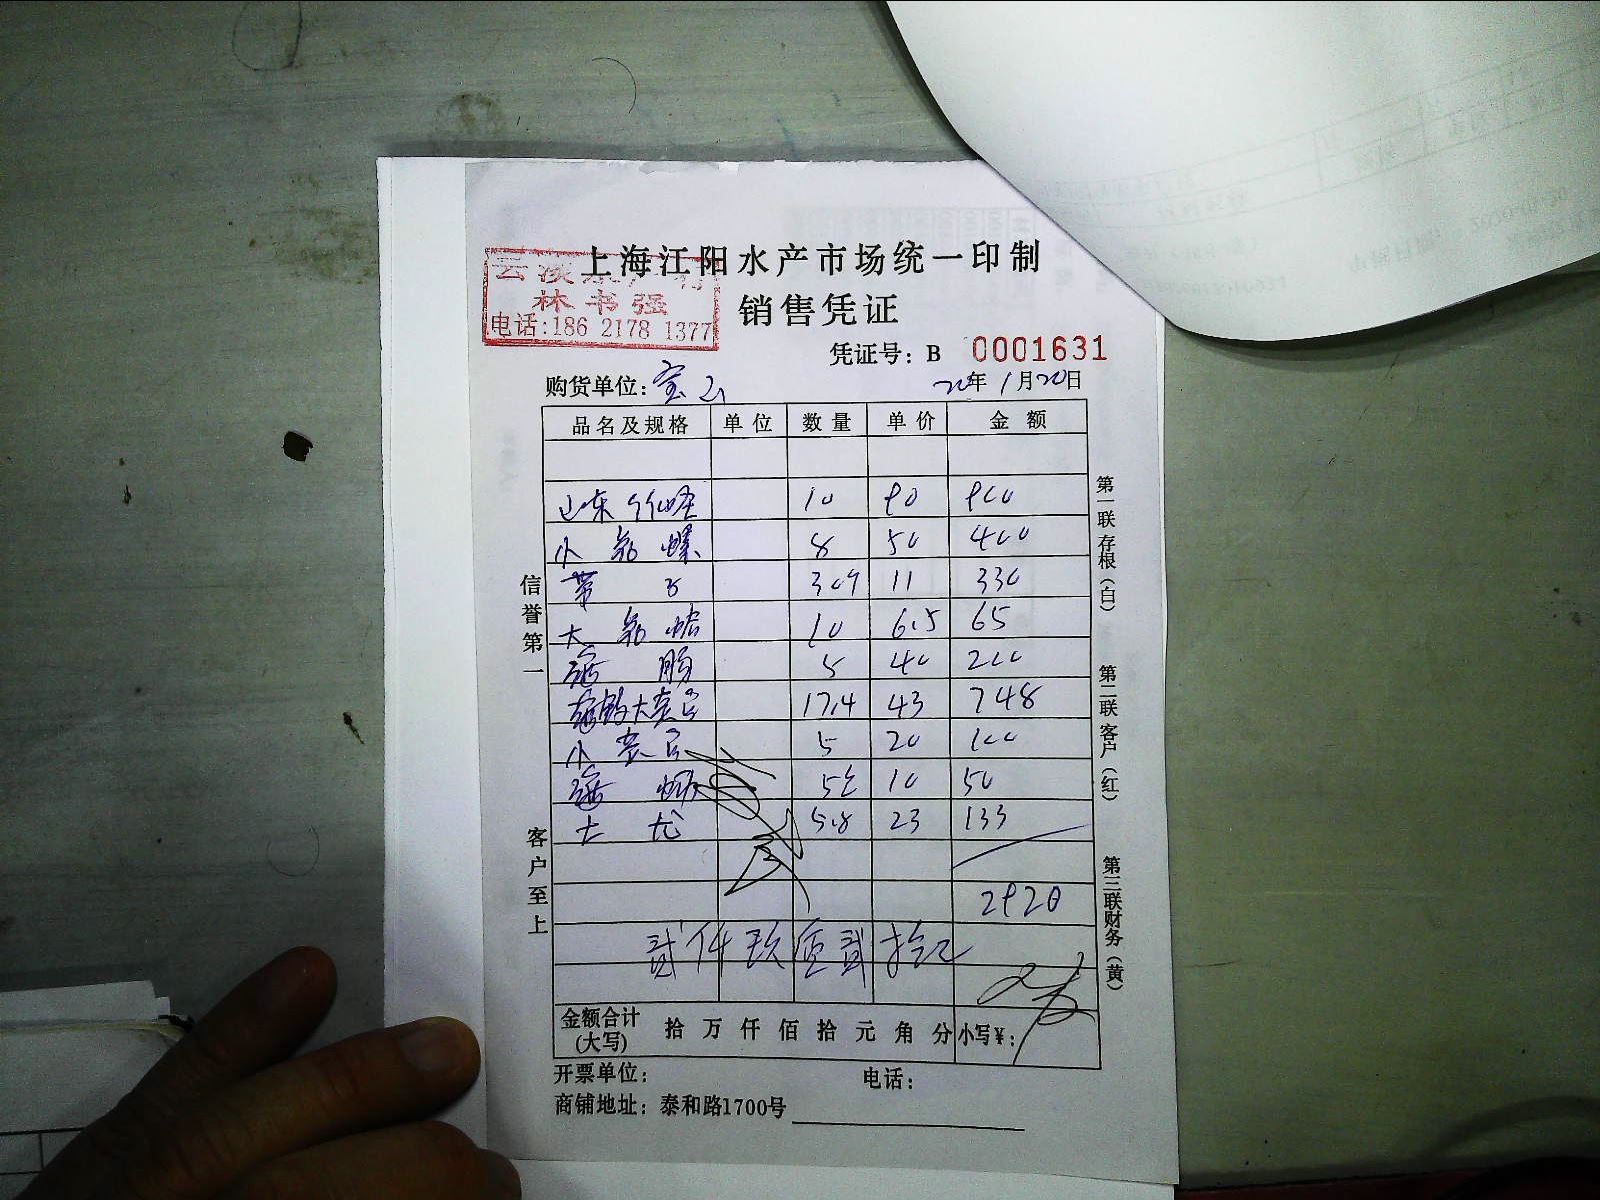 上海江阳水产市场统一印制
水产行
林书强
电话:186 2178 1377
销售凭证
凭证号: B 0001631
购货单位: 宝山 20年1月20日
品名及规格 单位 数量 单价 金额
山东 10 90 900
小 螺 8 50 400
带子 30个 11 330
大 蛤 10 6.5 65
海肠 5 40 200
大 17.4 43 748
小 5 20 100
海蛎 5 10 50
5.8 23 133
2920
贰仟玖佰贰拾元
金额合计(大写) 拾万仟佰拾元角分 小写¥:
开票单位: 电话:
商铺地址: 泰和路1700号
信誉第一
客户至上
第一联存根(白)
第二联客户(红)
第三联财务(黄)